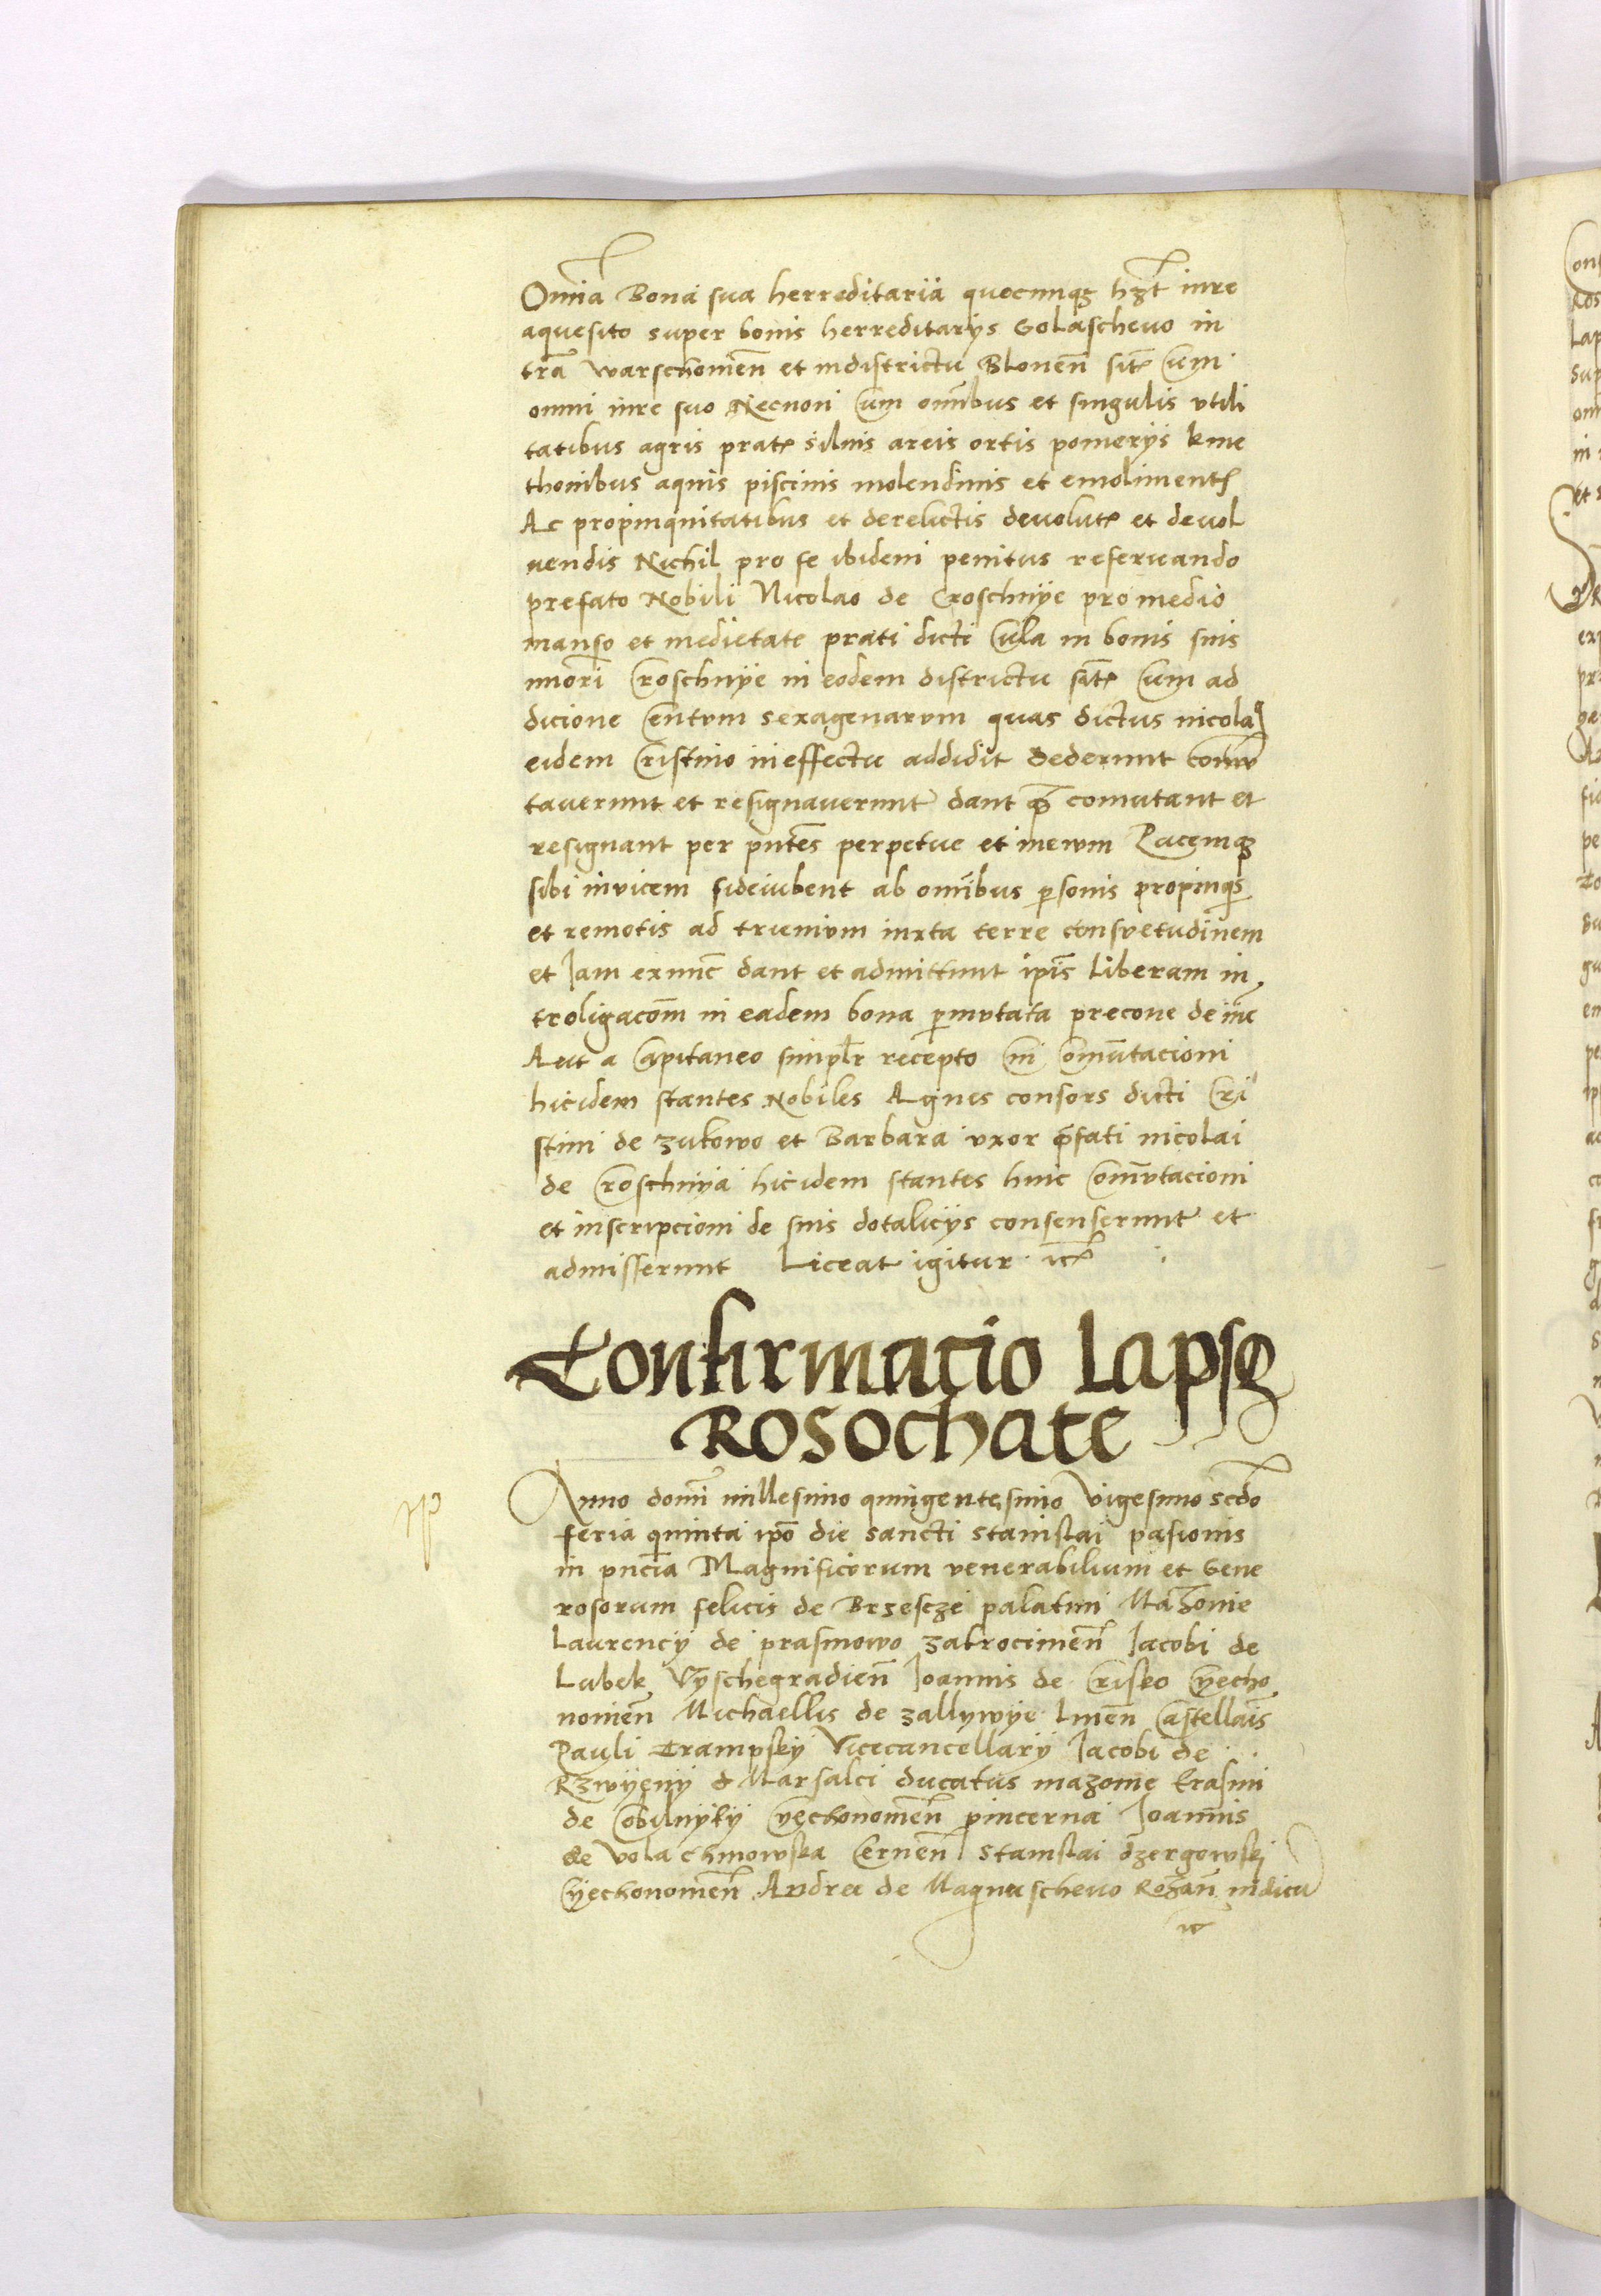 Om̄ia Bona sua herreditaria quocunqꝫ hꝫt iure
aquesito super bonis herreditarijs Golaschevo in
tr̄a warschouien̄ et in districtu Blonen̄ sitꝭ Cum
omni iure suo Necnon Cum om̄ibus et singulis vtili
tatibus agris pratꝭ siluis areis ortis pomerijs kme
thonibus aquis piscinis molendinis et emolimentꝭ
Ac propinquitatibus et derelictis devolutꝭ et devol
uendis Nichil pro se ibidem penitus reseruando
prefato Nobili Nicolao de Croschnye pro medio
manso et medietate prati dicti Cula in bonis suis
minori Croschnye in eodem districtu sitꝭ Cum ad
dicione Centum sexagenarum quas dictus nicolaꝰ
eidem Cristino in effectu addidit dederunt comu
taverunt et resignaverunt dant qꝫ comutant et
resignant per pn̄tes perpetue et in ewm Pacemqꝫ
sibi invicem fideiubent ab om̄ibus ꝑsonis propinqꝭ
et remotis ad trienium iuxta terre consvetudinem
et Jam exnunc dant et admittunt ip̄is Liberam in
troligacōm in eadem bona ꝑmvtata precone de iuͨe
Aut a Capitaneo simpl̄r recepto Cui Comutacioni
hicidem stantes Nobiles Agnes consors dicti Cri
stini de zukowo et Barbara vxor p̄fati nicolai
de Croschnya hicidem stantes huic Comvtacioni
et inscripcioni de suis dotalicijs consenserunt et
admisserunt Liceat igitur ꝛcꝭ
Confirmacio Lapsꝫ
Rosochate
Anno domī millesimo quingentesimo Vigesimo scd̄o
feria quinta ip̄o die sancti stanislai pasionis
in pn̄cia Magnificorum venerabilium et Gene
rosorum felicis de Brzescze palatini Mazouie
Laurencij de prasmowo zakrocimen̄ Jacobi de
Lubek Vyschegradien̄ Joannis de Crisko Cyecho
nouien̄ Michaellis de zallywye Liuen̄ Castellaīs
Pauli Crampsky Vicecancellarij Jacobi de
Rzwyeny d Marsalci ducatus mazouie Erasmi
de Cobilnyky Cyechonomen̄ pincerna Joan̄is
de Vola chinowska Cernen̄ Stanislai dzergowskj
Cyechonomen̄ Andree de Magnuschevo Rozan̄ iudicu
ꝛc